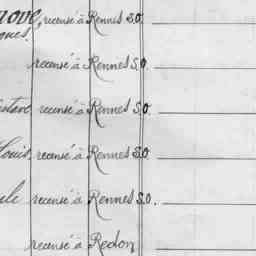 recensé à Rennes S.O.
recensé à Rennes S.O.
recensé à Rennes S.O.
recensé à Rennes S.O.
recensé à Rennes S.O.
recensé à Redon